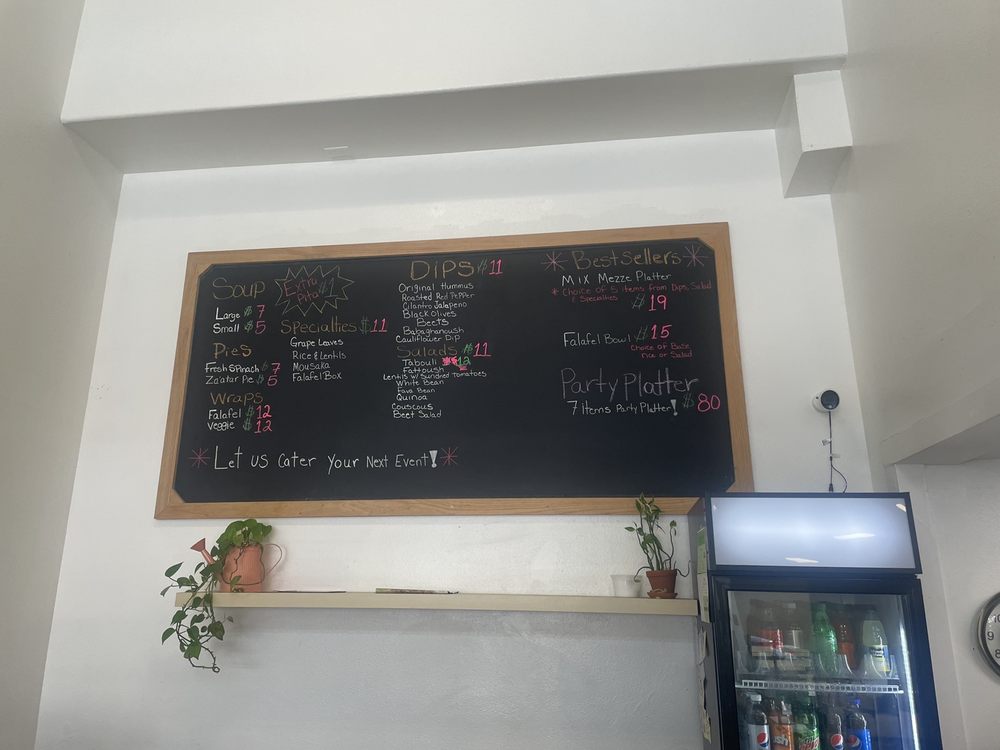 Soup
Large $7
Small $5
Pies
Fresh Spinach $7
Za'atar Pie $5
Wraps
Falafel $12
Veggie $12
Extra
Pita $1
Specialties $11
Grape Leaves
Rice & Lentils
Mousaka
Falafel Box
Dips $11
Original Hummus
Roasted Red Pepper
Cilantro Jalapeno
Black Olives
Beets
Babaghanoush
Cauliflower Dip
Salads $11
Tabouli $12
Fattoush
Lentils w/ Sundried Tomatoes
White Bean
Fava Bean
Quinoa
Couscous
Beet Salad
Best Sellers
Mix Mezze Platter
* Choice of 5 items from Dips, Salad
& Specialties $19
Falafel Bowl $15
Choice of Base
rice or Salad
Party Platter
7 items Party Platter! $80
Let us cater your Next Event!
pepsi